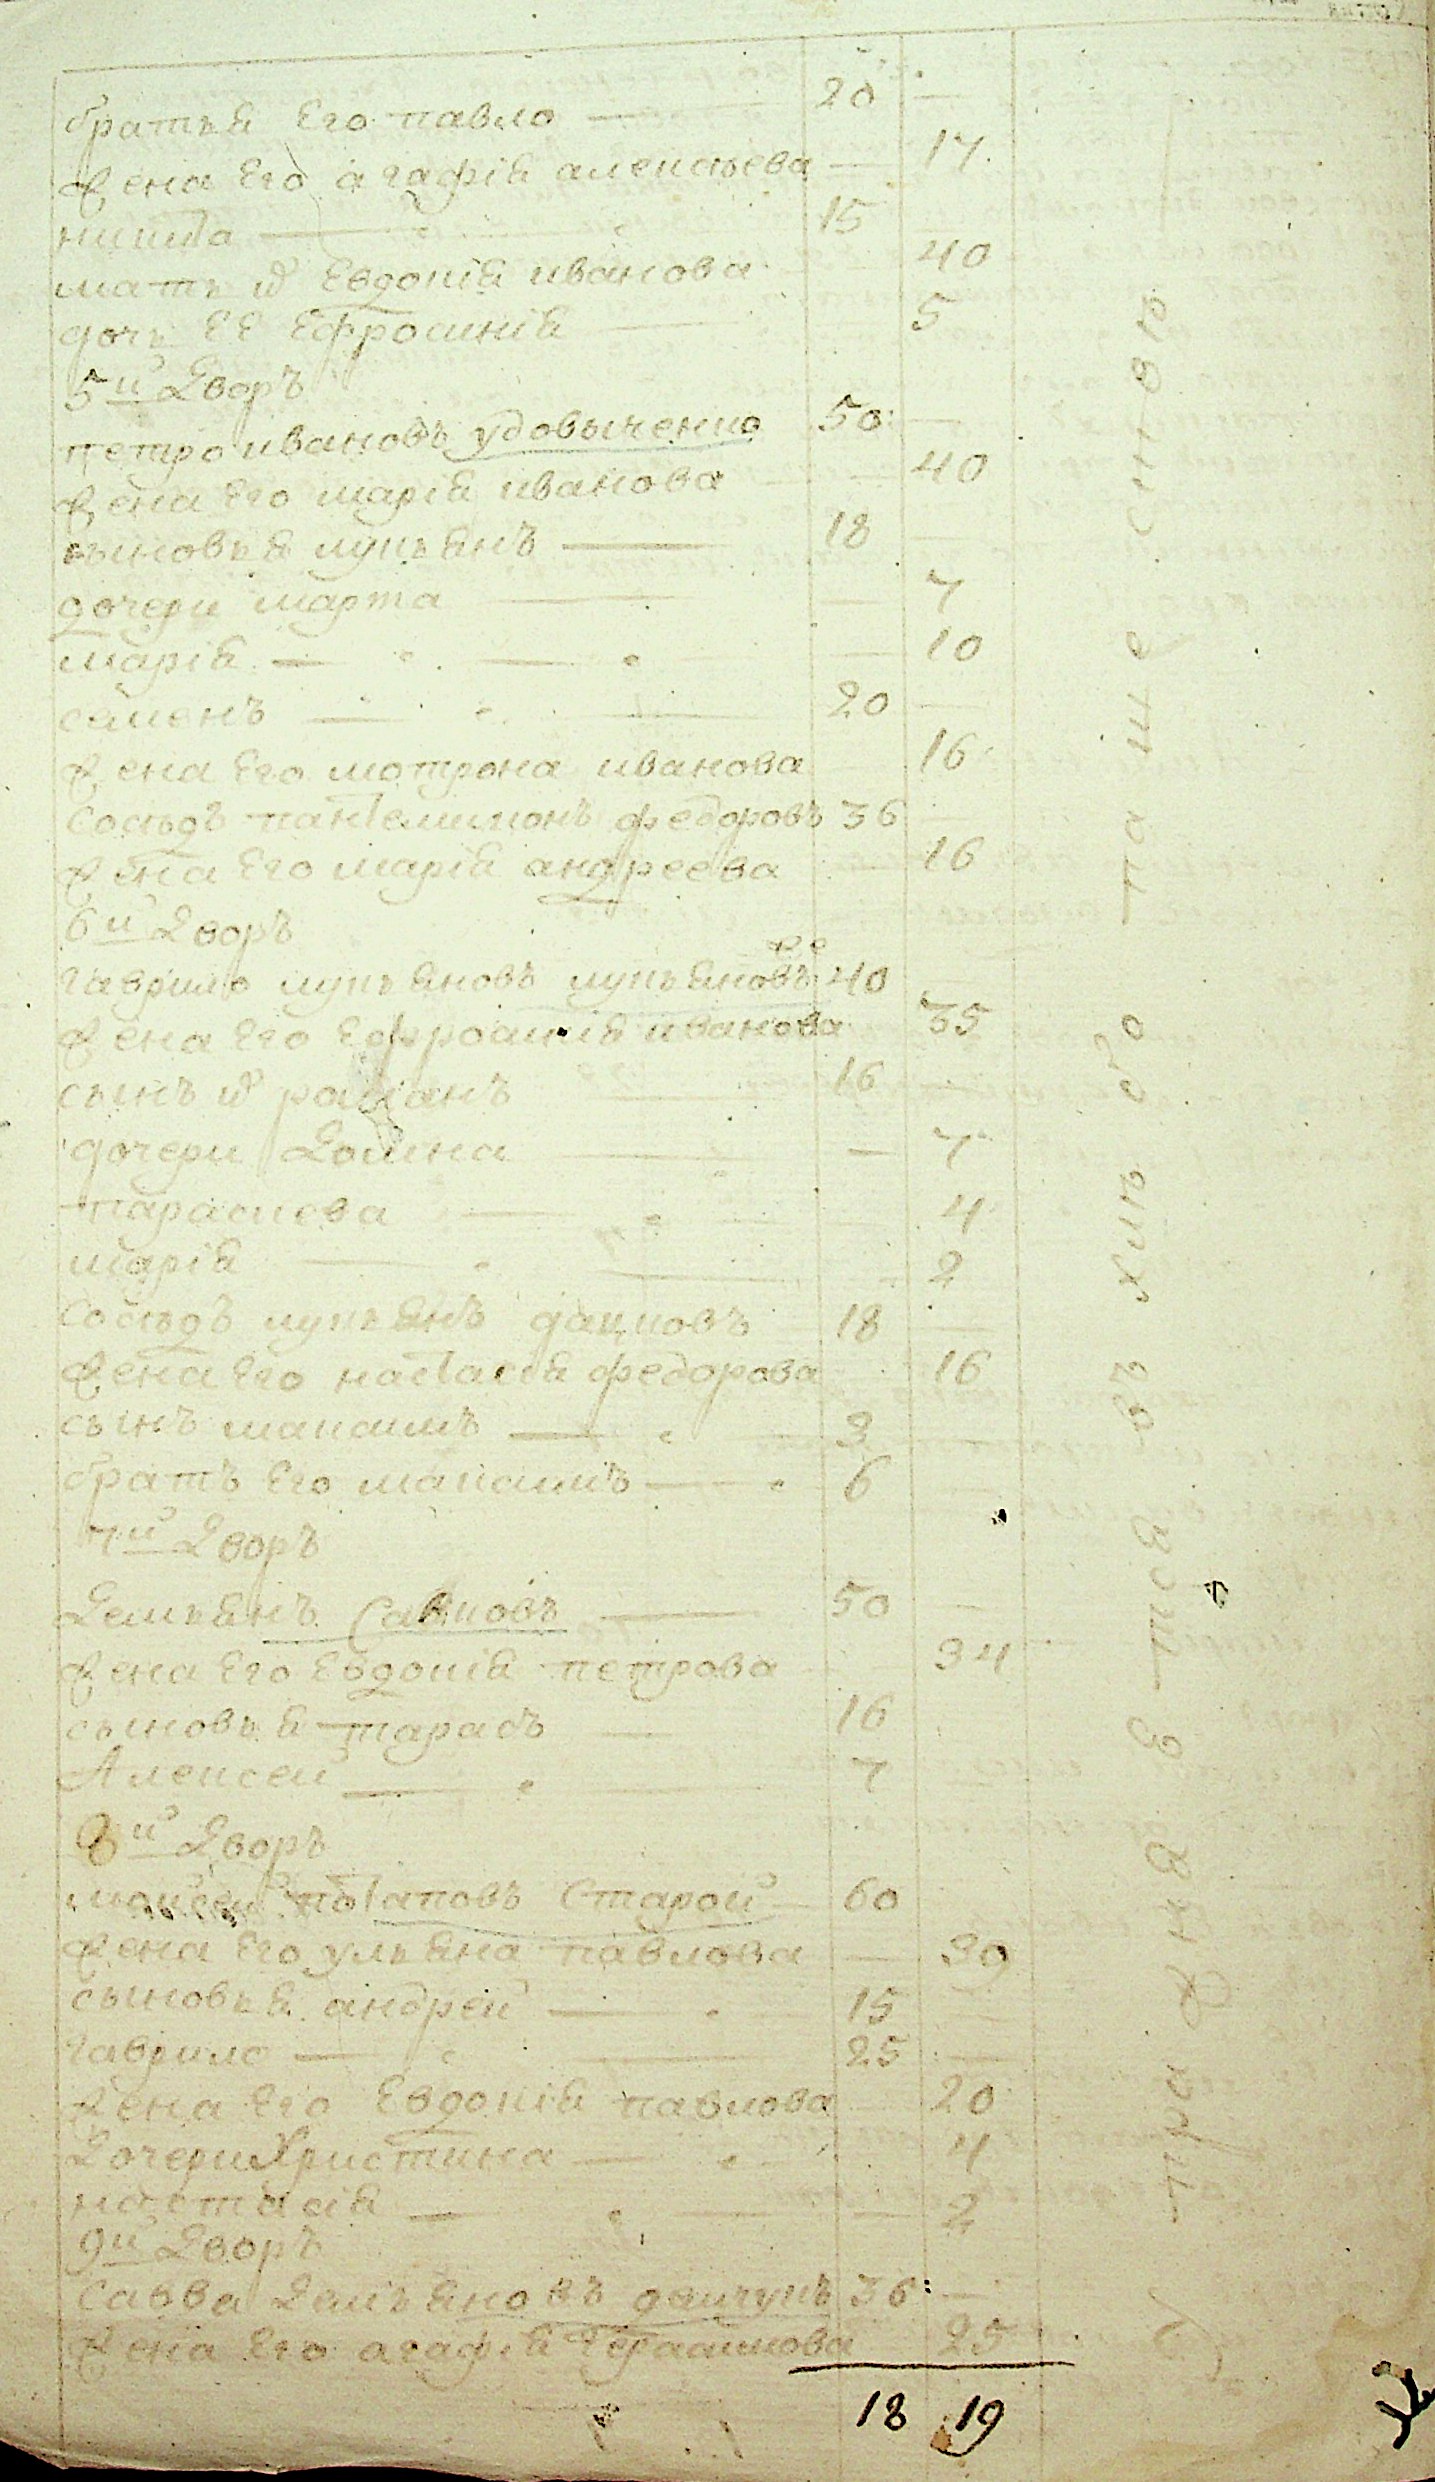 братья Его павло — 20 —
жена Его агафія алексѣева — 17
никита — 15
мать их Евдокія иванова 40
дочь ЕЕ Ефросинія 5
5й Дворъ
петро ивановъ удовыченко 50 —
жена Его марія иванова — 40
сыновья лукьянъ — 18
дочери марта — 7
марія — 10
семенъ — 20 —
жена Его мотрона иванова 16
сосѣдъ пантелимонъ федоровъ 36
жена Его марія андреева — 16
6й Дворъ
гаврило лукьяновъ лукьяновъ 40
жена Его Ефросинія иванова 35
сынъ их 16 —
дочери Домна — 7
параскева — 4
марія — 2
Сосѣдъ лукьянъ 18 —
жена Его настасія федорова 16
сынъ максимъ — 3
братъ Его максимъ — 6
7й Дворъ
Демьянъ Савиновъ — 50 —
жена Его Евдокія петрова 34
сыновья тарасъ — 16
Алексей — 7
8й Дворъ
моисей потаповъ Старой 60
жена Его ульяна павлова — 39
сыновья андрей — 15
гаврило — 25 —
жена Его Евдокія павлова 20
Дочери Христина — 4
настасія — 2
9й Дворъ
савва Демьяновъ 36 —
жена Его агафія Герасимова 25
18 19